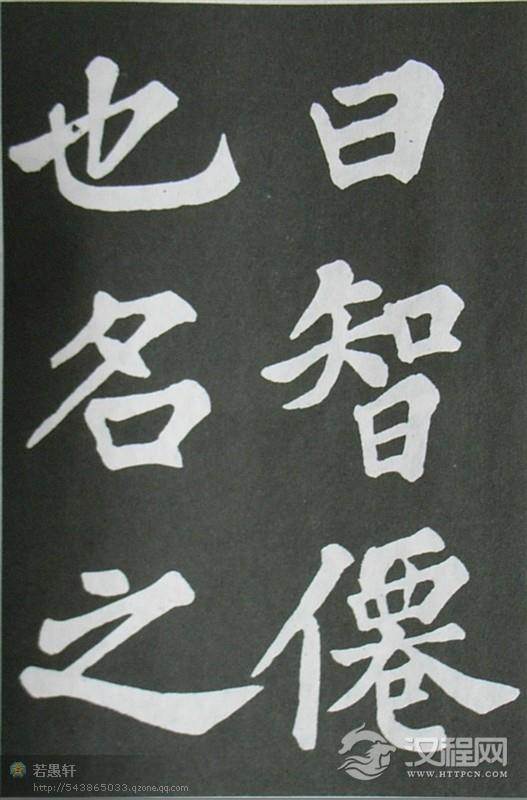 曰智僊
也名之
若愚轩
http://543865033.qzone.qq.com
汉程网
WWW.HTTPCN.COM